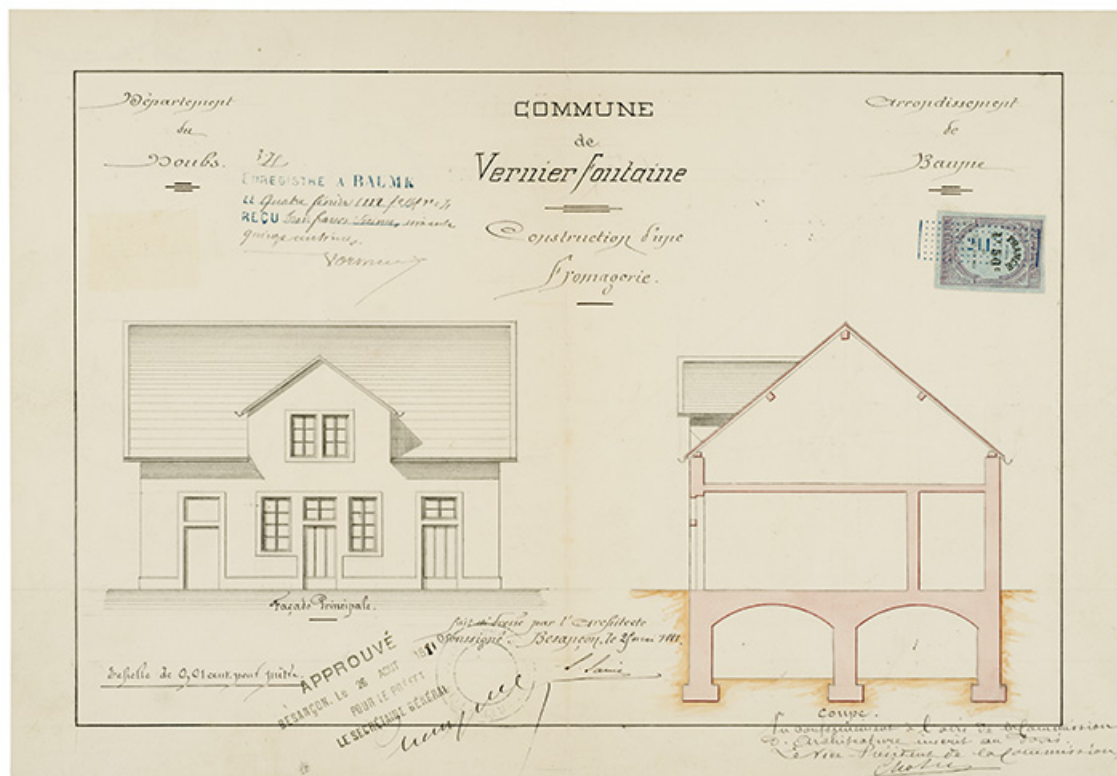 Département
du
Doubs.
COMMUNE
de
Vernier fontaine
Construction d'une
Fromagerie.
Arrondissement
de
Baume
ENREGISTRÉ A BAUME
LE quatre février
REÇU francs
quinze centimes.
FRANCE
1F50c
Façade Principale.
Echelle de 0,01 cent. pour mètre.
fait et dressé par l'Architecte
soussigné. Besançon, le mai
APPROUVÉ
BESANÇON, LE 26 AOUT
POUR LE PRÉFET
LE SECRÉTAIRE GÉNÉRAL
coupe.
Vu conformément à l'avis de la Commission
d'Architecture inscrit au
Le Vice-Président de la Commission